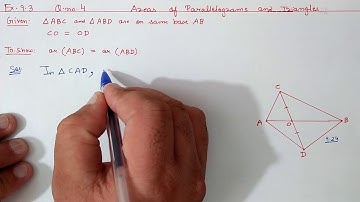 Ex. 9.3 Q. no. 4 Areas of Parallelograms and Triangles
Given: △ABC and △ABD are on same base AB
CO = OD
To show: ar (ABC) = ar (ABD)
Sol: In △CAD,
C
A
O
B
D
9.24